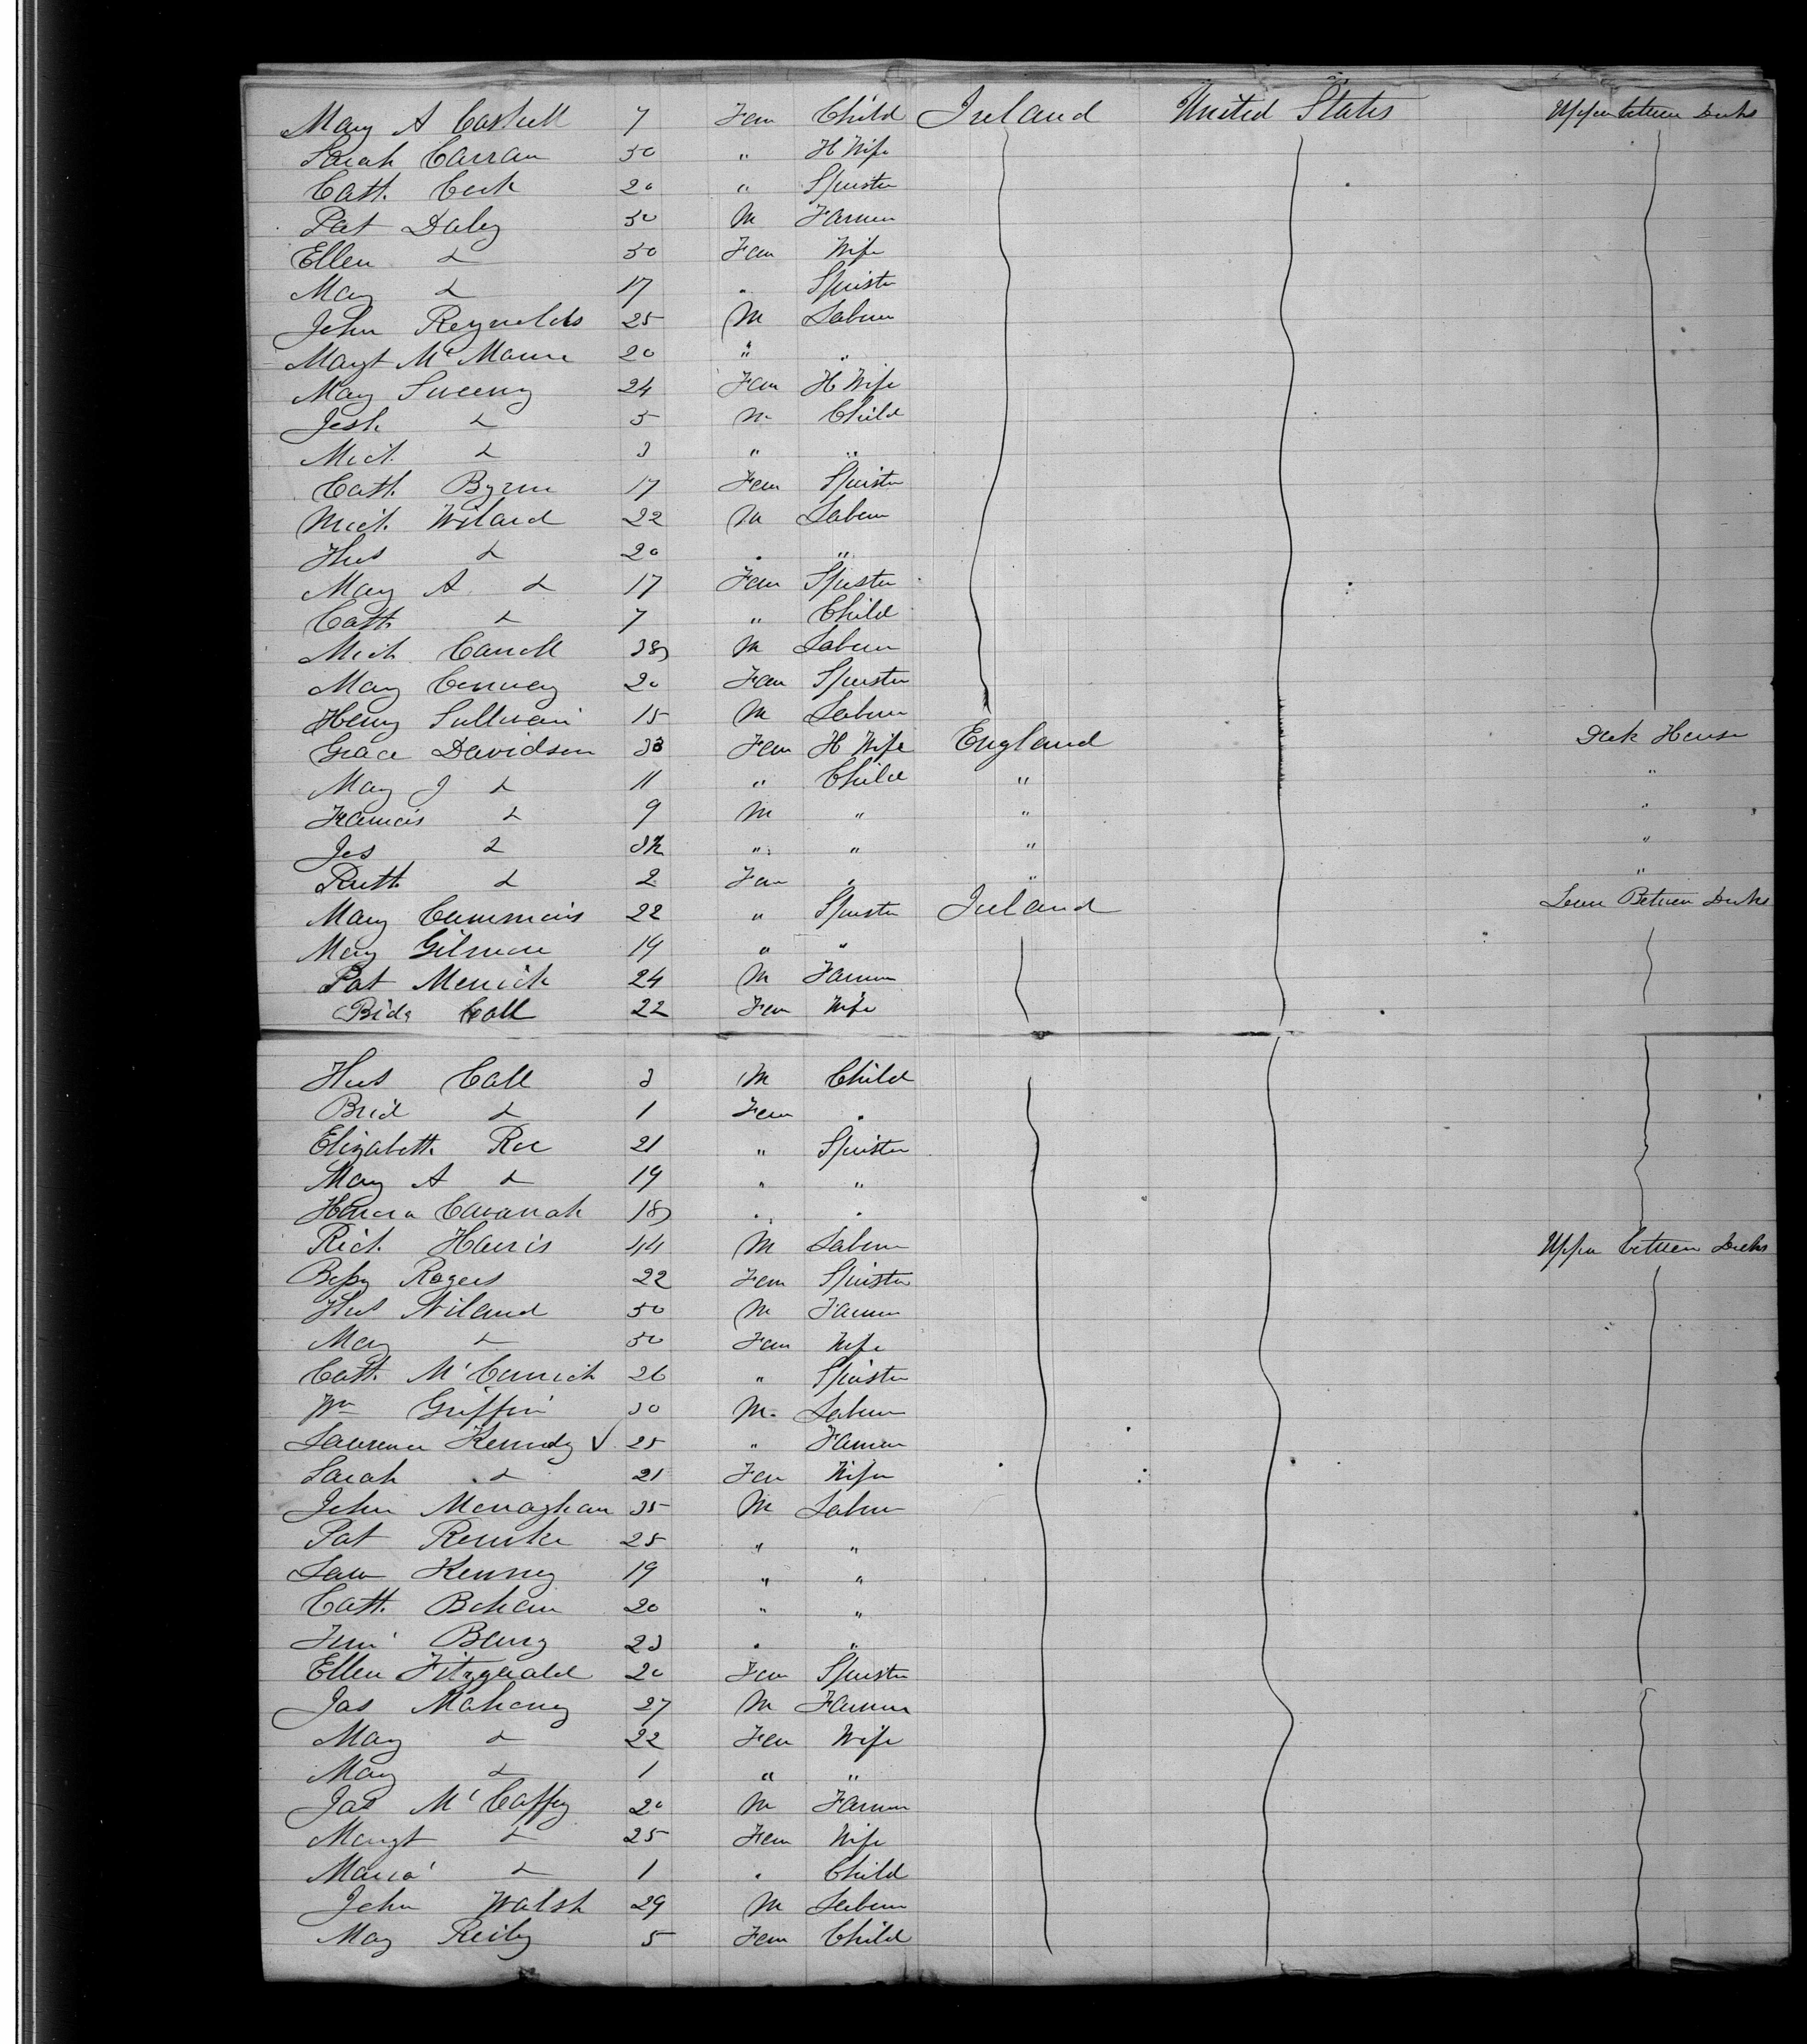 Mary A Coskell 7 Fem Child Ireland United States Upper between Decks
Sarah Carran 50 " H Wife
Cath. 20 " Spinster
Pat Daley 50 M Farmer
Ellen do 50 Fem Wife
Mary do 17 " Spinster
John Reynolds 25 M Labour
Margt Mc 20 " "
Mary Sweeny 24 Fem H Wife
Josh do 5 M Child
Mich. do 3 " "
Cath. Byrne 17 Fem Spinster
Mich. 22 M Labour
Thos do 20 " "
Mary A do 17 Fem Spinster
Cath. do 7 " Child
Mich Carroll 38 M Labour
Mary Conway 20 Fem Spinster
Henry Sullivan 15 M Labour
Grace Davidson 33 Fem H Wife England Deck House
Mary J do 11 " Child " "
Francis do 9 M " " "
Jos do " " " "
Ruth do 2 Fem " " "
Mary Cummins 22 " Spinster Ireland Lower Between Decks
Mary Gilmore 19 " "
Pat Merrick 24 M Farmer
Bidg Coll 22 Fem Wife
Thos Coll 3 M Child
Brid do 1 Fem "
Elizabeth Roe 21 " Spinster
Mary A do 19 " "
Honora Cavanah 18 " "
Rich. Harris 44 M Labour Upper between Decks
Bessy Rogers 22 Fem Spinster
Thos Niland 50 M Farmer
Mary do 50 Fem Wife
Cath. McCormick 26 " Spinster
Wm Griffin 30 M. Labour
Lawrence Kennedy √ 25 " Farmer
Sarah do 21 Fem Wife
John Monaghan 35 M Labour
Pat 25 " "
Law Kenney 19 " "
Cath. Behan 20 " "
Barry 23 " "
Ellen Fitzgerald 20 Fem Spinster
Jas Mahoney 27 M Farmer
Mary do 22 Fem Wife
Mary do 1 " "
Jas McCaffry 20 M Farmer
Margt do 25 Fem Wife
Maria do 1 " Child
John Walsh 29 M Labour
Mary Reily 5 Fem Child